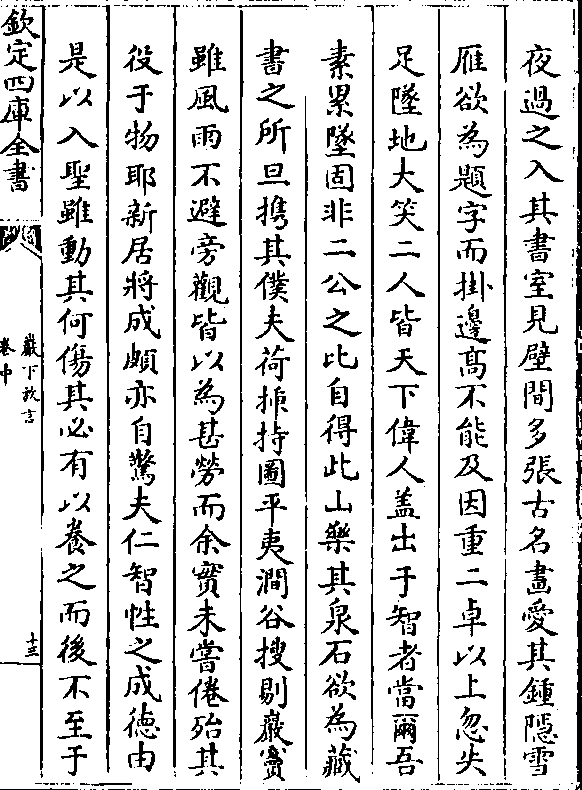 夜過之入其書室見壁間多張古名畫愛其鍾隱雪
雁欲為題字而掛邊髙不能及因重二卓以上忽失
足墜地大笑二人皆天下偉人蓋出于智者當爾吾
素累墜固非二公之比自得此山樂其泉石欲為藏
書之所旦擕其僕夫荷鍤持圖平夷澗谷搜剔巖竇
雖風雨不避旁觀皆以為甚勞而余實未嘗倦殆其
役于物耶新居將成頗亦自驚夫仁智性之成徳由
是以入聖雖動其何傷其必有以養之而後不至于
欽定四庫全書
巖下放言
卷中
十三